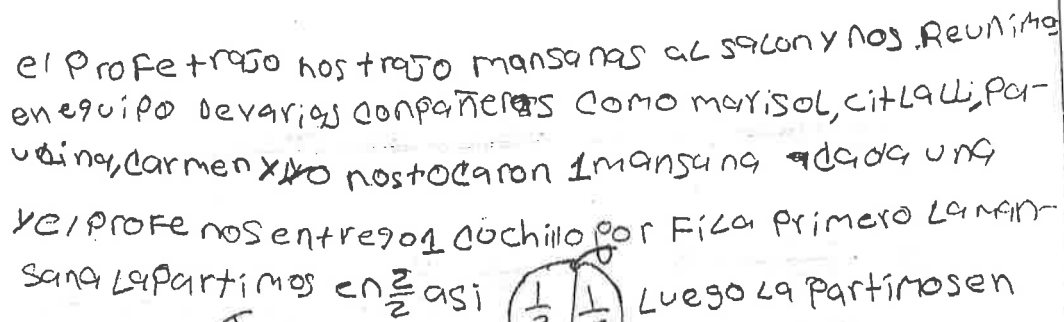 el Profe trajo nos trajo mansanas al salon y nos Reunimo
en equipo de varias conpañeras como marisol, citlalli, Pa-
ulina, carmen y yo nos tocaron 1 mansana a cada una
y el Profe nos entrego 1 cochillo por fila primero la man-
sana la partimos en 2/2 asi 1/2 1/2 Luego la partimos en